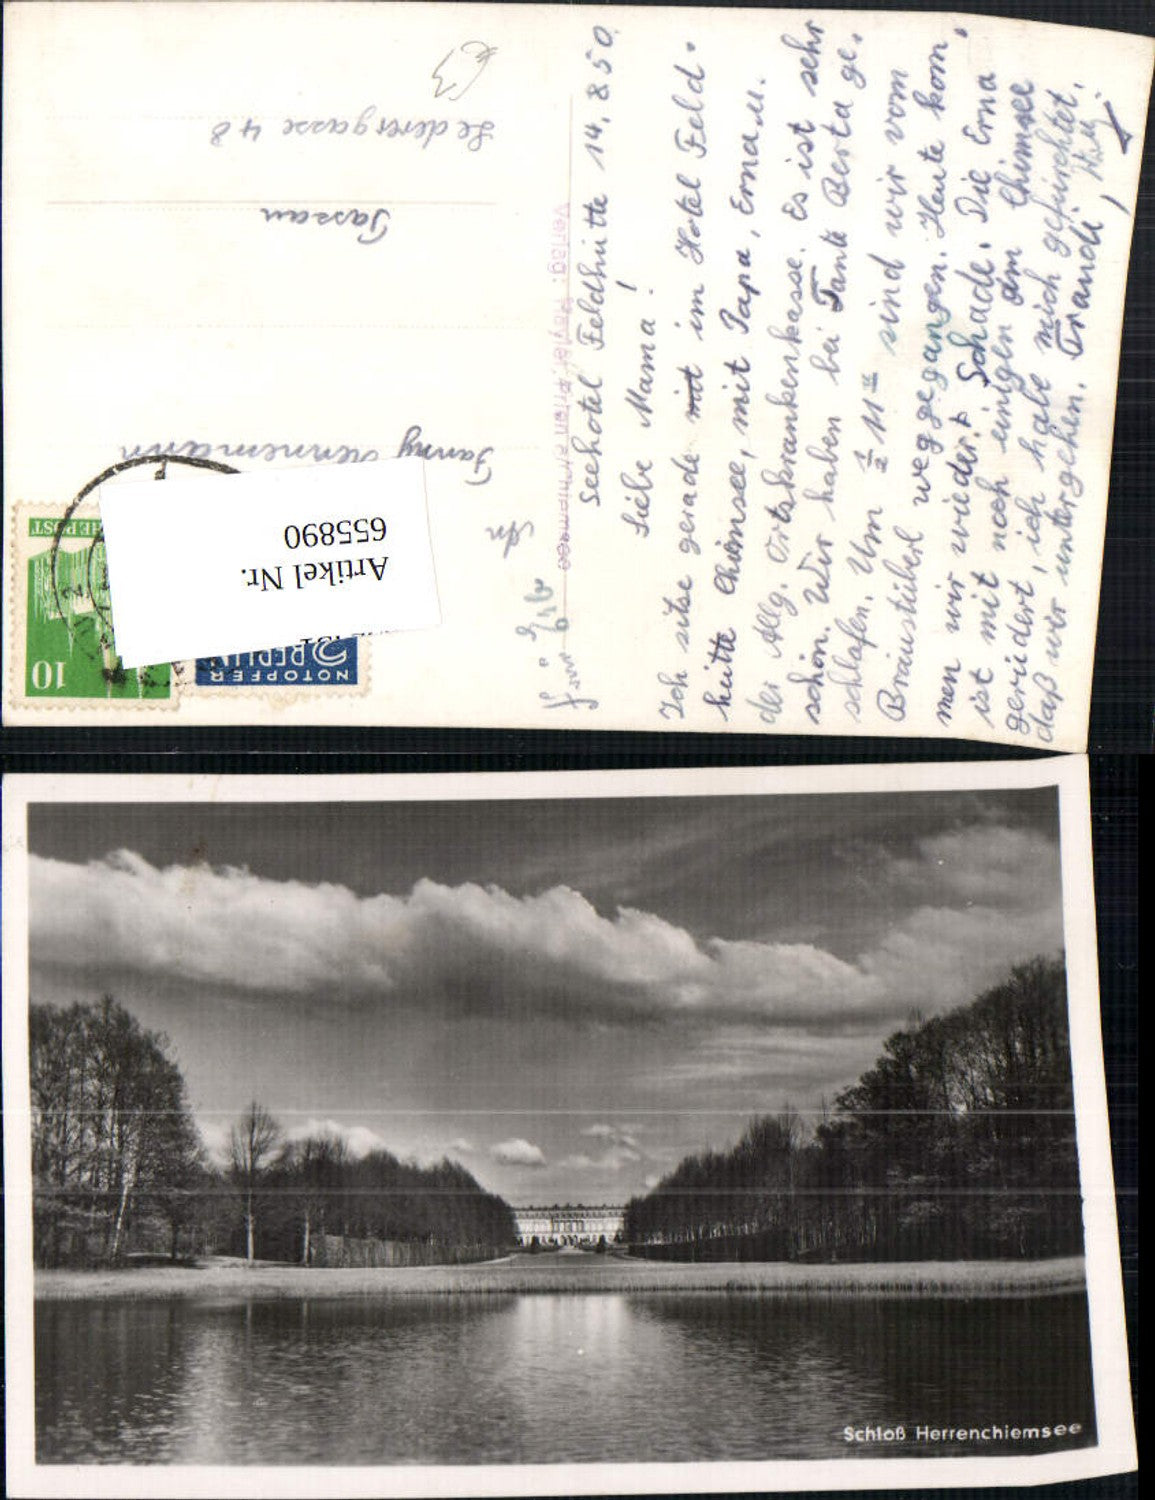 Seehotel Feldhütte 14.8.50.
Liebe Mama!
Ich sitze gerade mit im Hotel Feld-
hütte Chiemsee, mit Papa, Erna u.
der Allg. Ortskrankenkasse. Es ist sehr
schön. Wir haben bei Tante Berta ge-
schlafen. Um ½ 11 sind wir vom
Bräustüberl weggegangen. Heute kom-
men wir wieder. Schade. Die Erna
ist mit noch einigen am Chimsee
gerudert, ich habe mich gefürchtet,
daß wir untergehen. Traudi,
An
Fanny
Passau
Lederergasse 48
€3
Verlag:
Artikel Nr.
655890
10
NOTOPFER
2 BERLIN
Schloß Herrenchiemsee